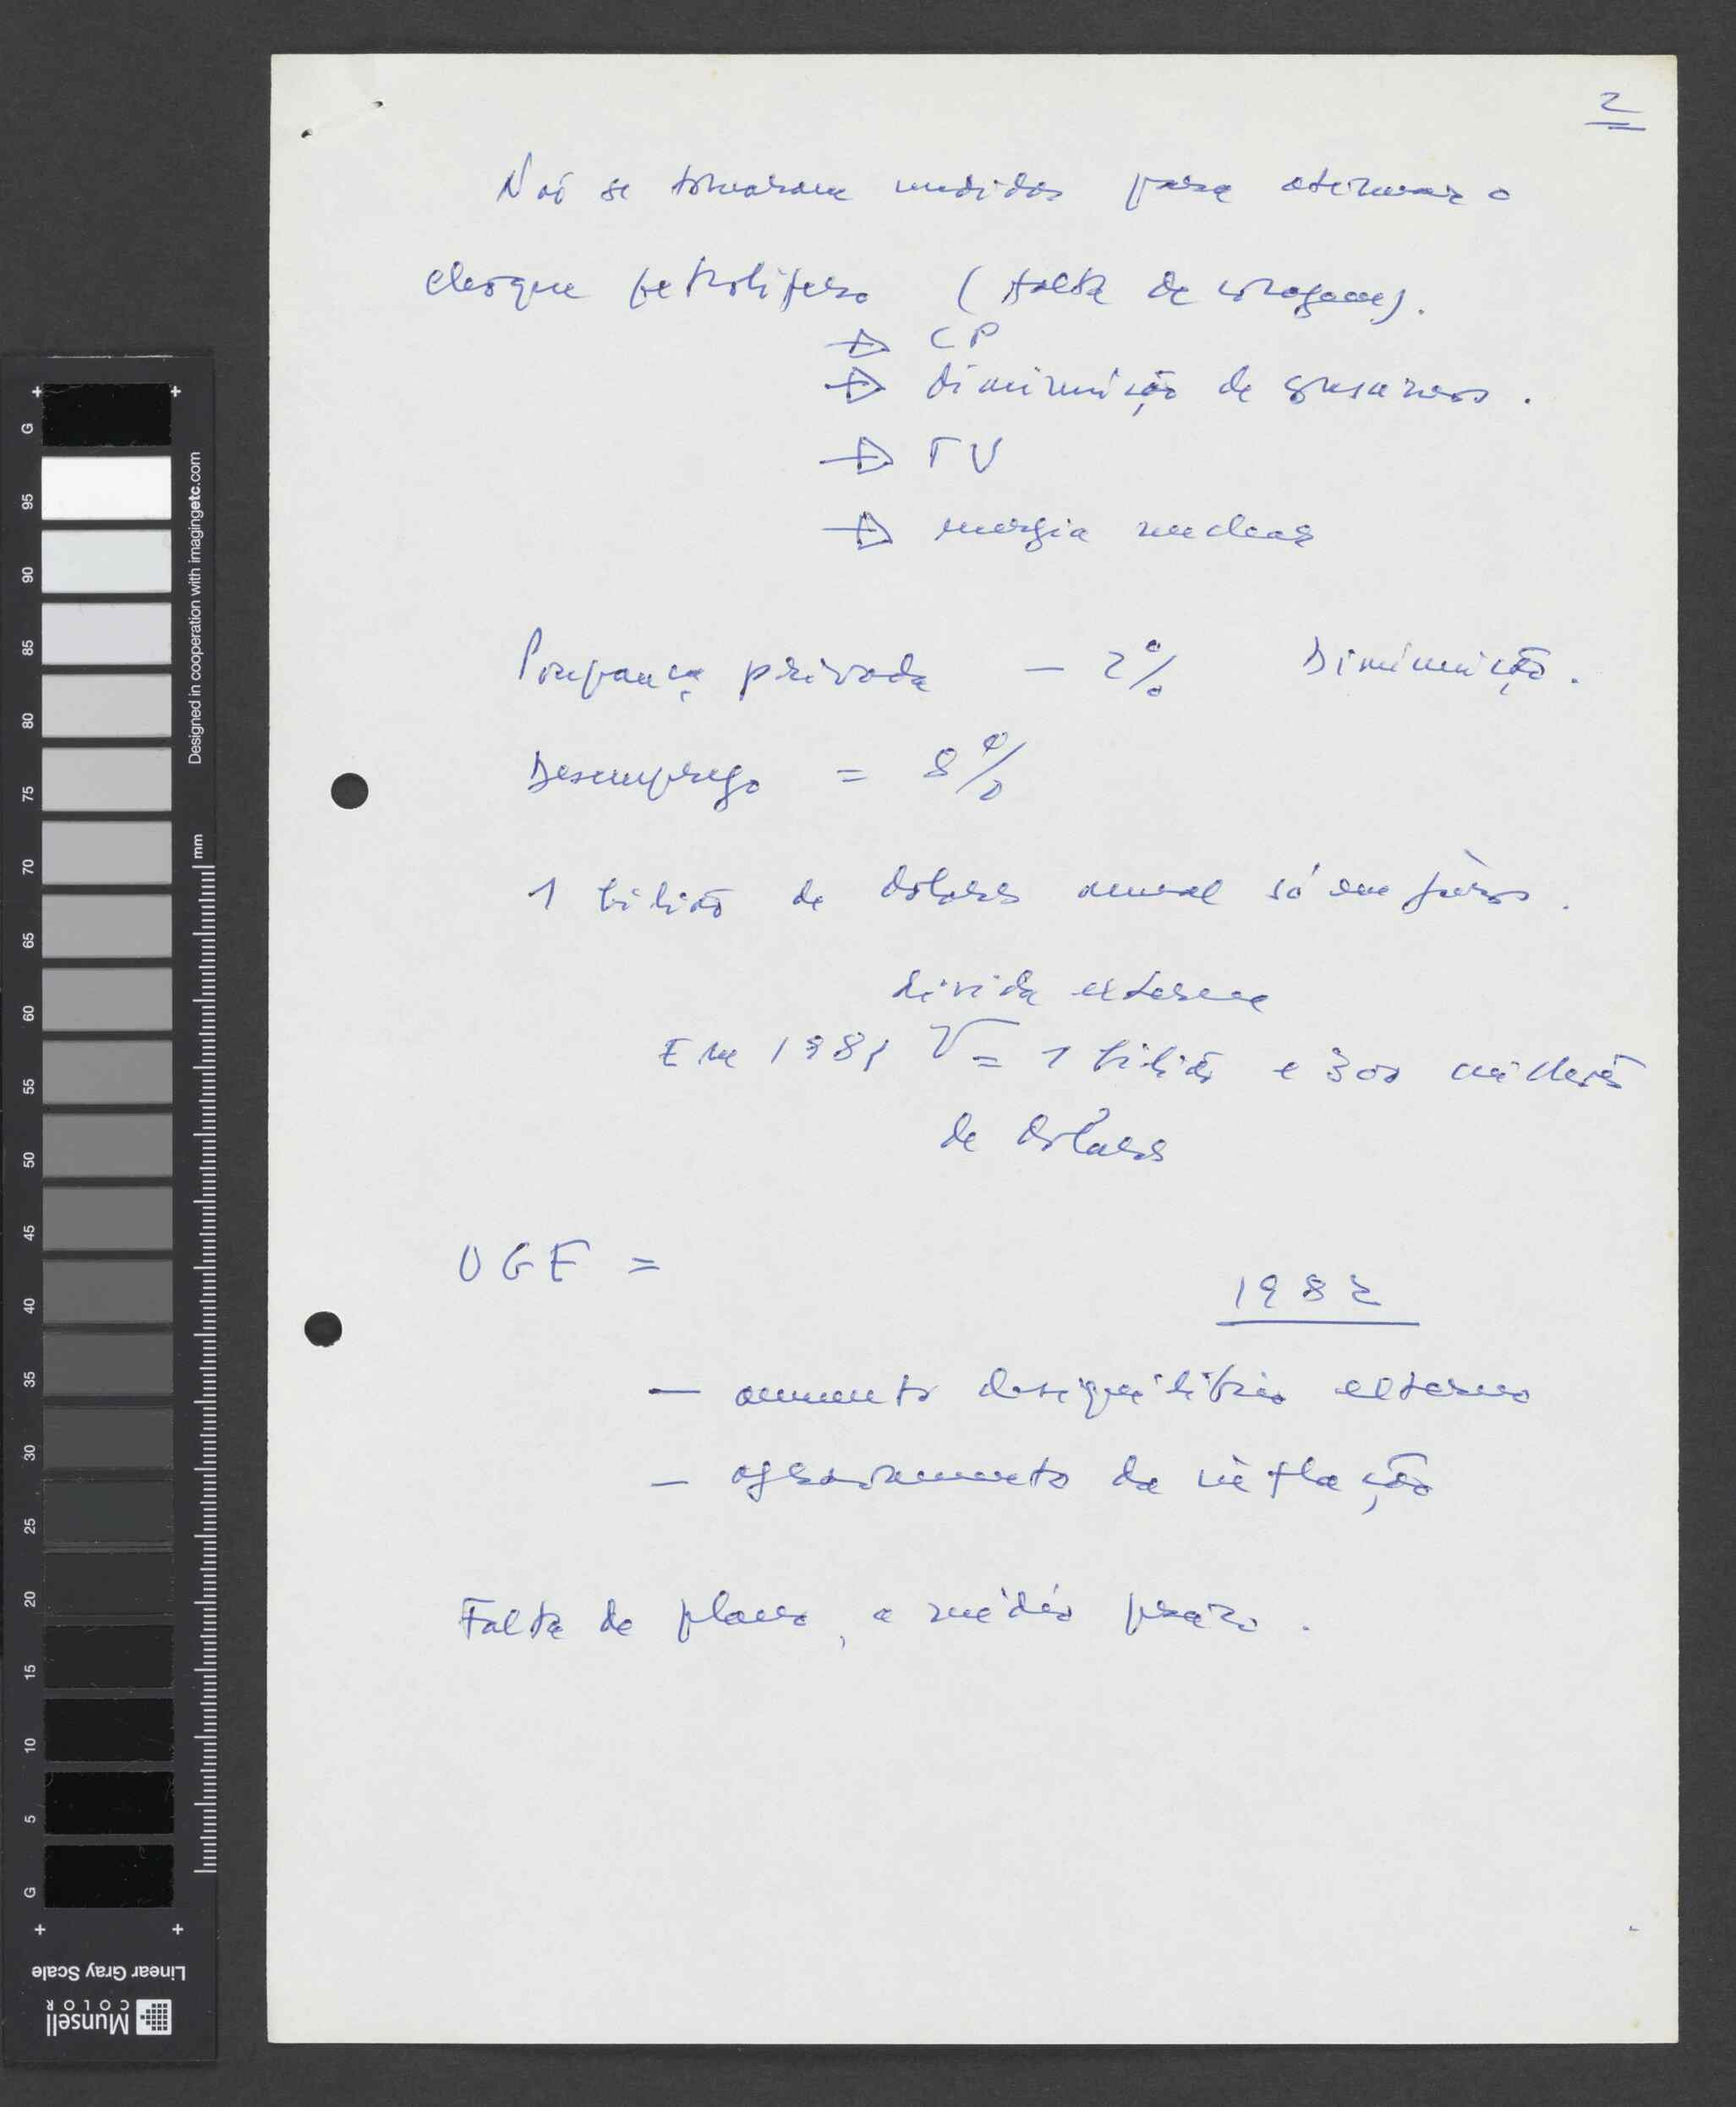 2
Não se tomaram medidas para atenuar o
choque petrolífero (falta de coragem).
→ CP
→ diminuição de consumos.
→ TV
→ energia nuclear
Poupança privada — 2% Diminuição.
Desemprego = 8%
1 bilião de dolares anual só em juros.
divida externa
Em 1981 = 1 bilião e 300 milhões
de dolares
OGE =
1982
— aumento desiquilibrio externo
— agravamento da inflação
Falta de plano, a médio prazo.
G
95
90
85
80
75
70
65
60
55
50
45
40
35
30
25
20
15
10
5
G
mm
Designed in cooperation with imagingetc.com
Linear Gray Scale
Munsell
COLOR